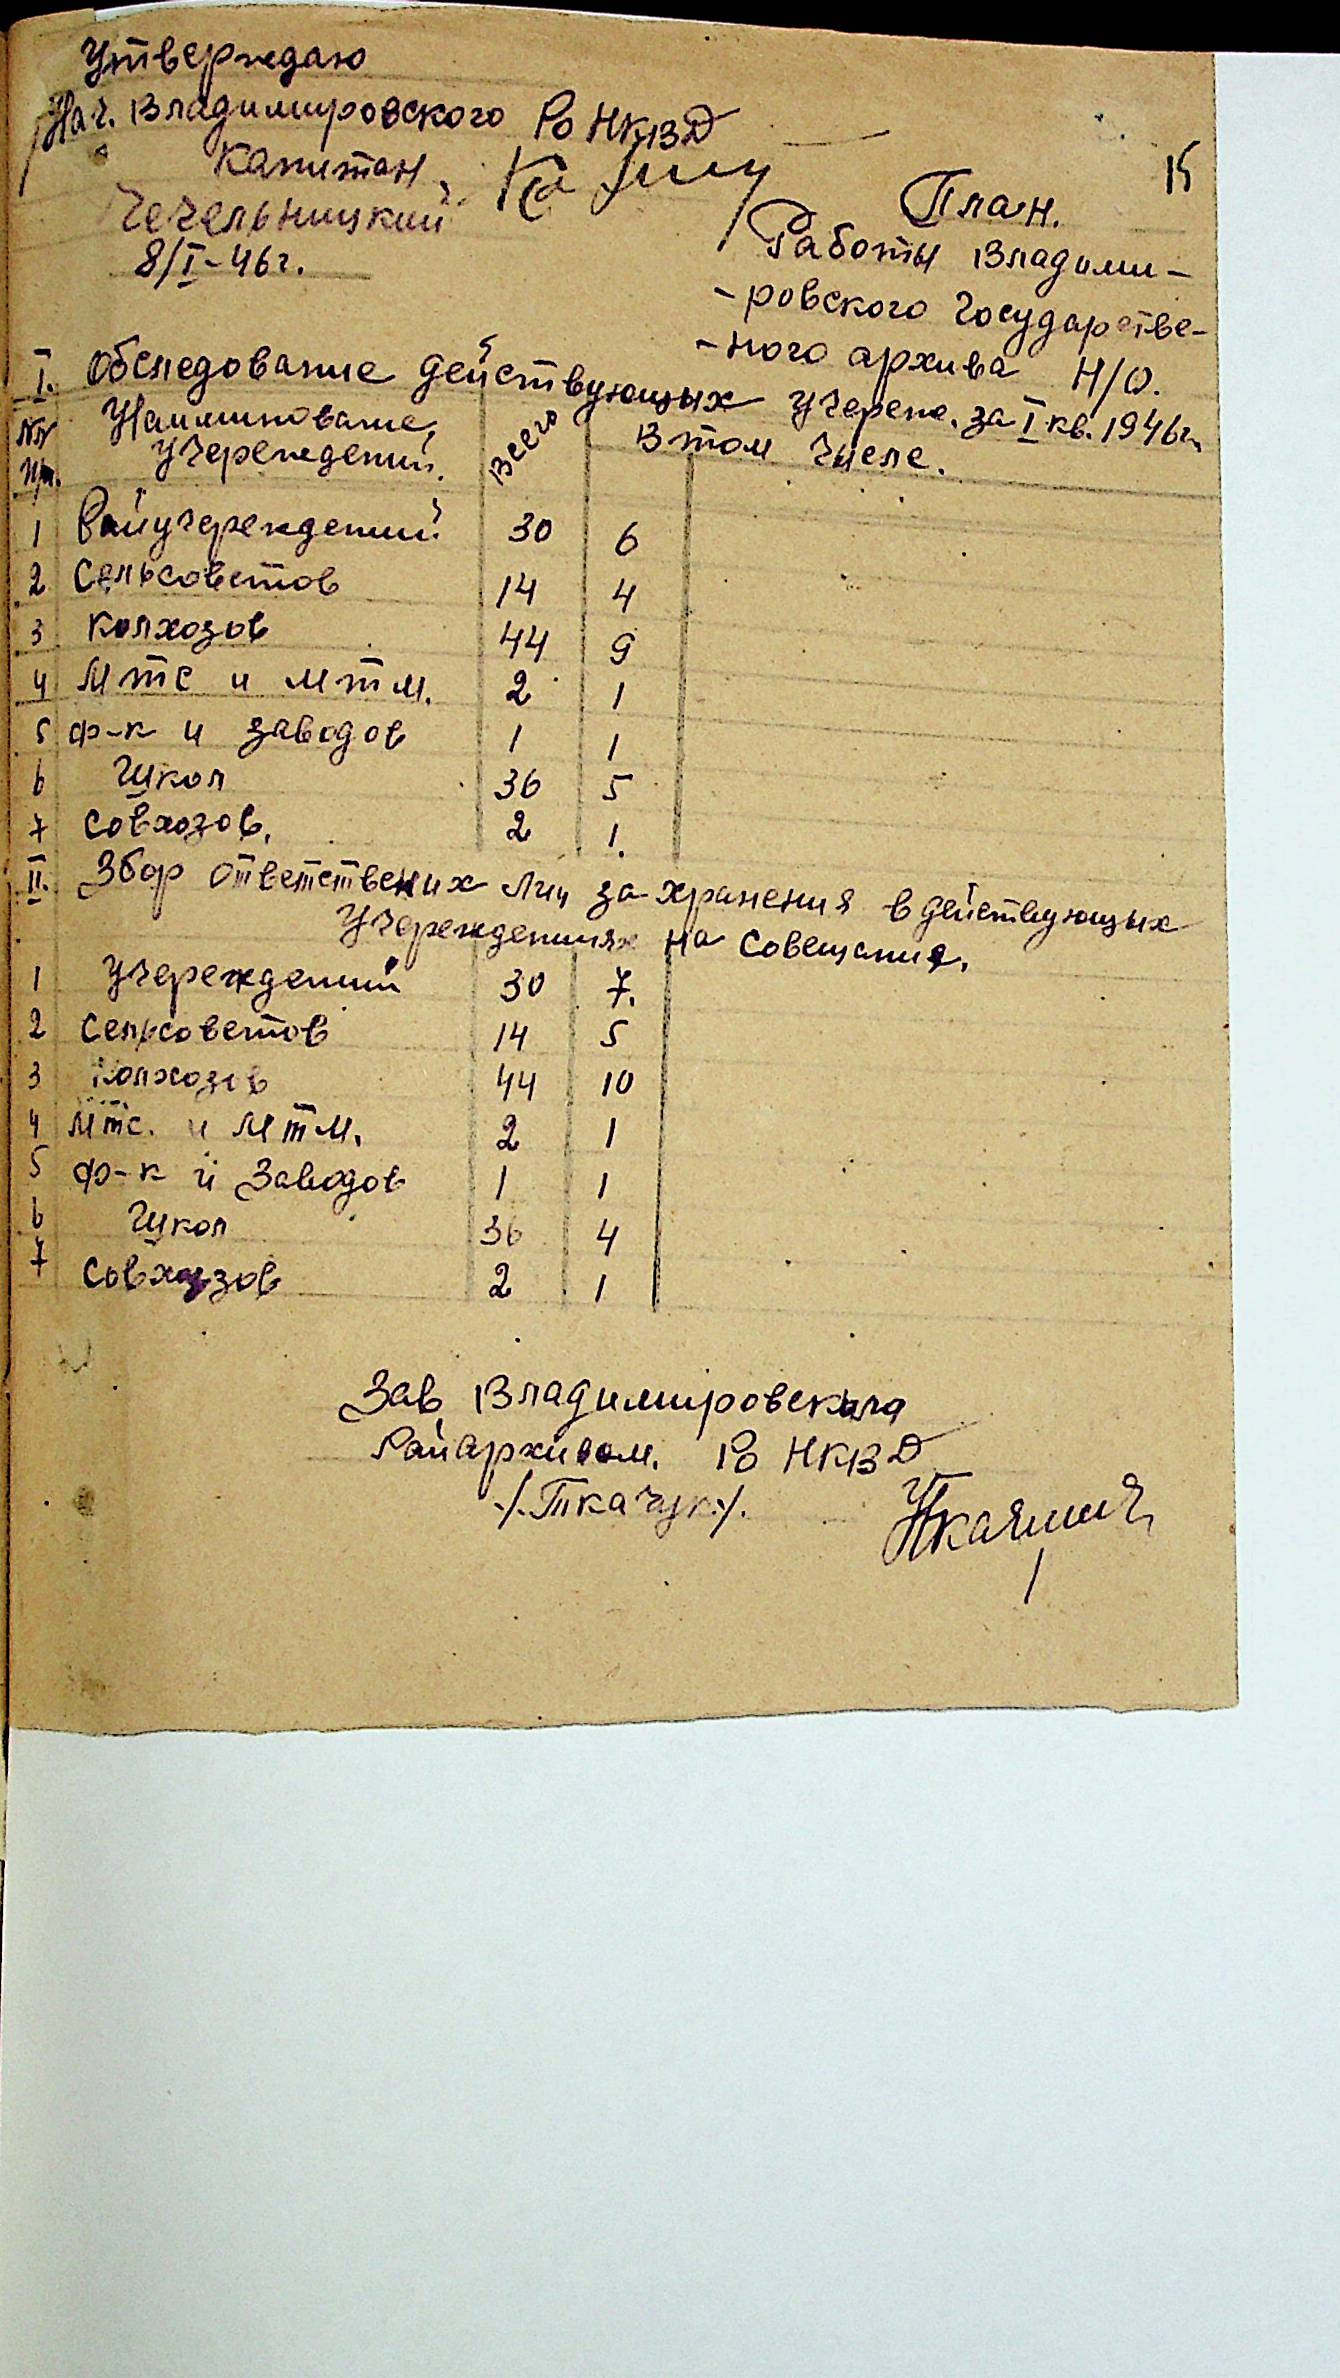 Утверждаю
Нач. Владимировского Ро НКВД
Капитан
Чечельницкий
8/I-46г.
15
План.
Работы Владими-
-ровского Государстве-
-ного архива Н/О.
I. Обследование действующих учережд. за I кв. 1946г.
№№ п/п. Наименование учереждений. Всего В том числе.
1 Райучереждений 30 6
2 Сельсоветов 14 4
3 Колхозов 44 9
4 МТС и МТМ. 2 1
5 ф-к и заводов 1 1
6 Школ 36 5
7 Совхозов. 2 1.
II. Збор ответствених лиц за хранения в действующих
учереждениях на совещание.
1 Учереждений 30 7.
2 Сельсоветов 14 5
3 Колхозов 44 10
4 МТС. и МТМ. 2 1
5 ф-к и Заводов 1 1
6 Школ 36 4
7 Совхозов 2 1
Зав. Владимировского
Райархивом. Ро НКВД
./.Ткачук./.